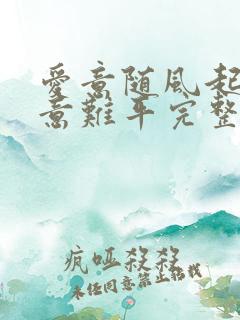 愛意随風起
意難平完整
疯哑殺殺
未经同意禁止转载